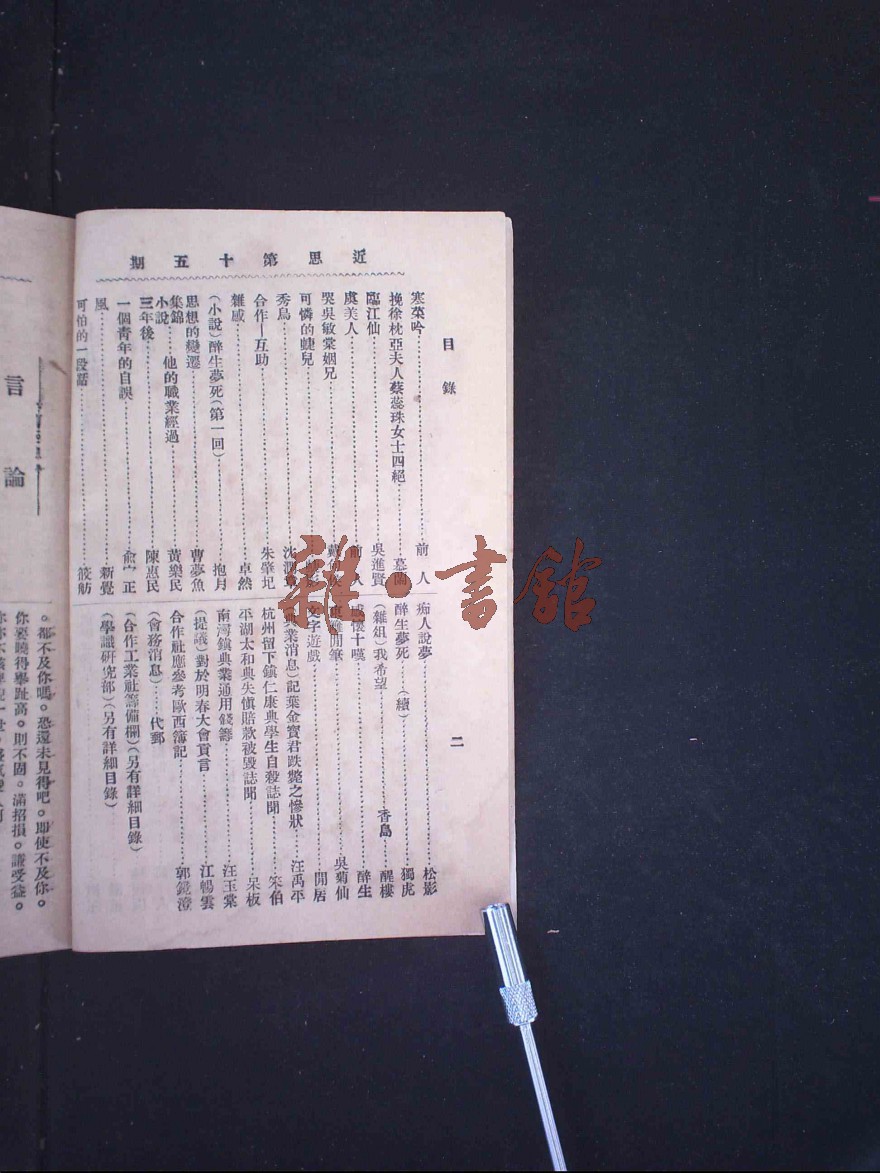 近思第十五期
目錄
二
寒菜吟……前人
挽徐枕亞夫人蔡蕊珠女士四絕……慕園
臨江仙……吳進賢
虞美人……前人
哭吳敏棠姻兄……
可憐的蟪兒……
秀鳥……
合作—互助……朱肇圯
雜感……卓然
(小說)醉生夢死(第一回)……抱月
思想的變遷……曹夢魚
集錦小說……他的職業經過……黃樂民
三年後……陳惠民
一個青年的自誤……正
風……新覺
可怕的一段話……筱舫
痴人說夢……松影
醉生夢死……(續)……獨虎
(雜俎)我希望……香島醒樓
感懷十嘆……醉生
閒筆……吳菊仙
文字遊戲……閒居
典業消息)記葉金寶君跌斃之慘狀……汪禹平
杭州留下鎮仁康典學生自殺誌聞……笨伯
平湖太和典失愼賠款被毀誌聞……呆板
南潯鎮典業通用錢籌……汪玉棠
(提議)對於明春大會貢言……江暢雲
合作社應參考歐西簿記……郭鏡澄
(會務消息)……代郵
(合作工業社籌備欄)(另有詳細目錄)
(學識研究部)(另有詳細目錄)
言論
。都不及你嗎。恐還未見得吧。即使不及你。
你要曉得舉趾高。則不固。滿招損。謙受益。